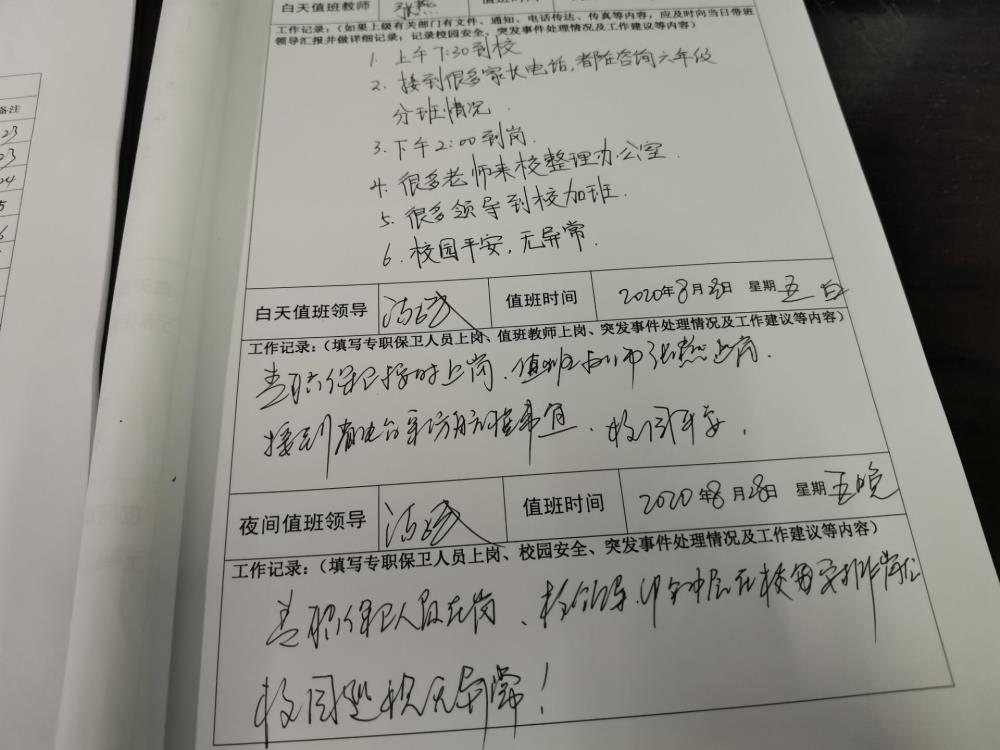 备注
23
23
24
5
6
白天值班教师 张燕
工作记录:(如果上级有关部门有文件、通知、电话传达、传真等内容,应及时向当日带班
领导汇报并做详细记录;记录校园安全、突发事件处理情况及工作建议等内容)
1. 上午7:30到校
2. 接到很多家长电话,都在咨询六年级
分班情况.
3. 下午2:00到岗.
4. 很多老师来校整理办公室.
5. 很多领导到校加班.
6. 校园平安,无异常.
白天值班领导 值班时间 2020年8月28日 星期五 白
工作记录:(填写专职保卫人员上岗、值班教师上岗、突发事件处理情况及工作建议等内容)
专职保卫按时上岗、值班教师张燕上岗.
接到电台采访事宜、校园平安.
夜间值班领导 值班时间 2020年8月28日 星期五晚
工作记录:(填写专职保卫人员上岗、校园安全、突发事件处理情况及工作建议等内容)
专职保卫人员在岗、校领导、中层在校
校园巡视无异常!